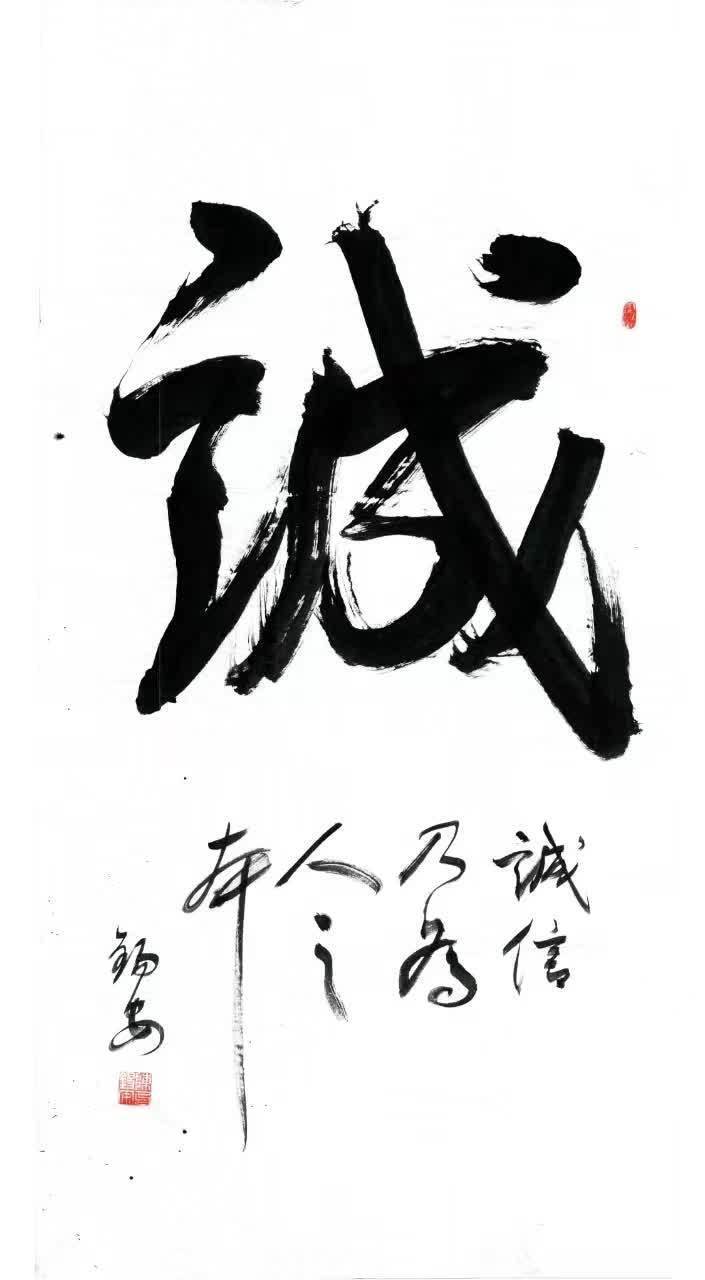 誠
誠信
乃為
人之
本
錫安